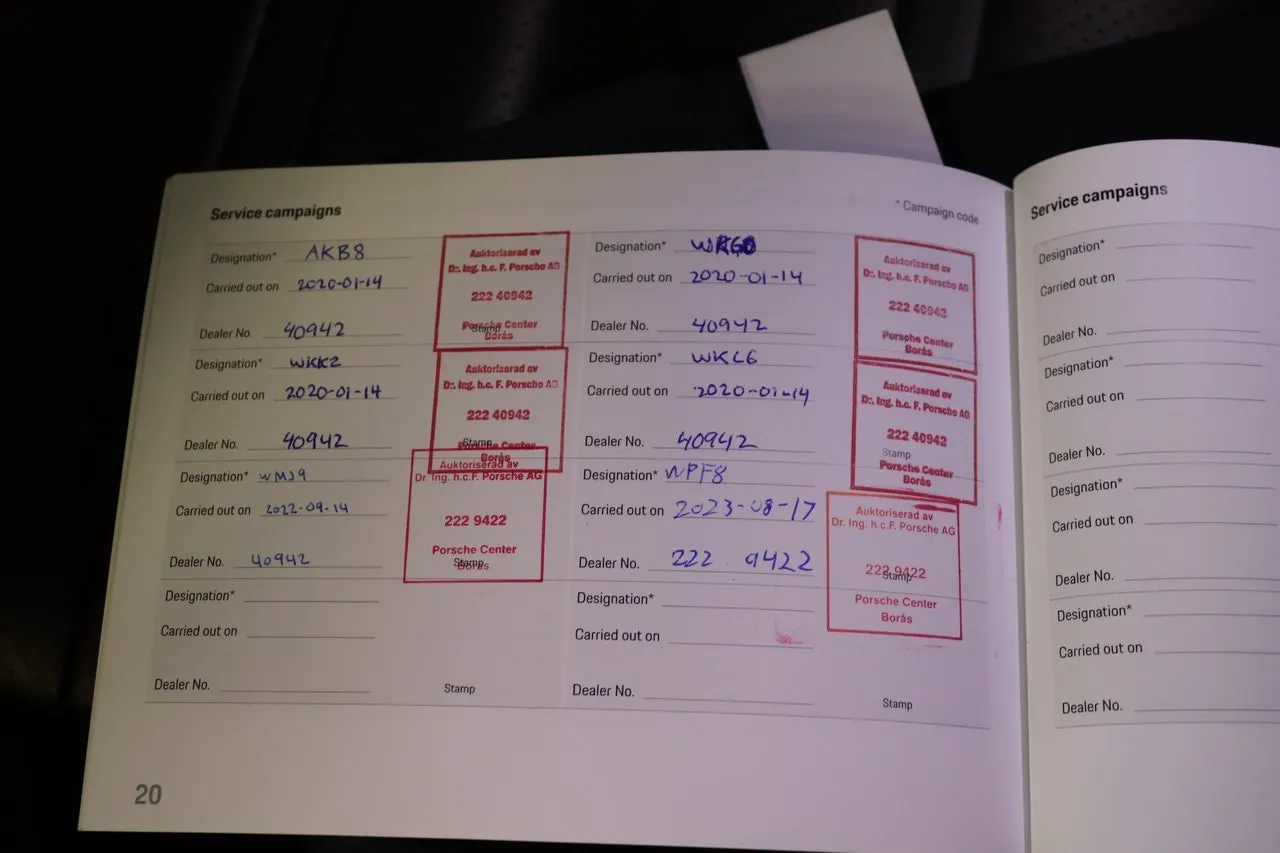 Service campaigns
* Campaign code
Designation* AKB8
Carried out on 2020-01-14
Dealer No. 40942
Auktoriserad av
Dr. Ing. h.c. F. Porsche AG
222 40942
Porsche Center
Borås
Stamp
Designation*
Carried out on 2020-01-14
Dealer No. 40942
Auktoriserad av
Dr. Ing. h.c. F. Porsche AG
222 40942
Porsche Center
Borås
Designation* WKK2
Carried out on 2020-01-14
Dealer No. 40942
Auktoriserad av
Dr. Ing. h.c. F. Porsche AG
222 40942
Stamp
Porsche Center
Borås
Designation* WKL6
Carried out on 2020-01-14
Dealer No. 40942
Auktoriserad av
Dr. Ing. h.c. F. Porsche AG
222 40942
Stamp
Porsche Center
Borås
Designation* WMJ9
Carried out on 2022-09-14
Dealer No. 40942
Auktoriserad av
Dr. Ing. h.c.F. Porsche AG
222 9422
Porsche Center
Borås
Stamp
Designation* WPF8
Carried out on 2023-08-17
Dealer No. 222 9422
Auktoriserad av
Dr. Ing. h.c.F. Porsche AG
222 9422
Stamp
Porsche Center
Borås
Designation*
Carried out on
Dealer No.
Stamp
Designation*
Carried out on
Dealer No.
Stamp
20
Service campaigns
Designation*
Carried out on
Dealer No.
Designation*
Carried out on
Dealer No.
Designation*
Carried out on
Dealer No.
Designation*
Carried out on
Dealer No.